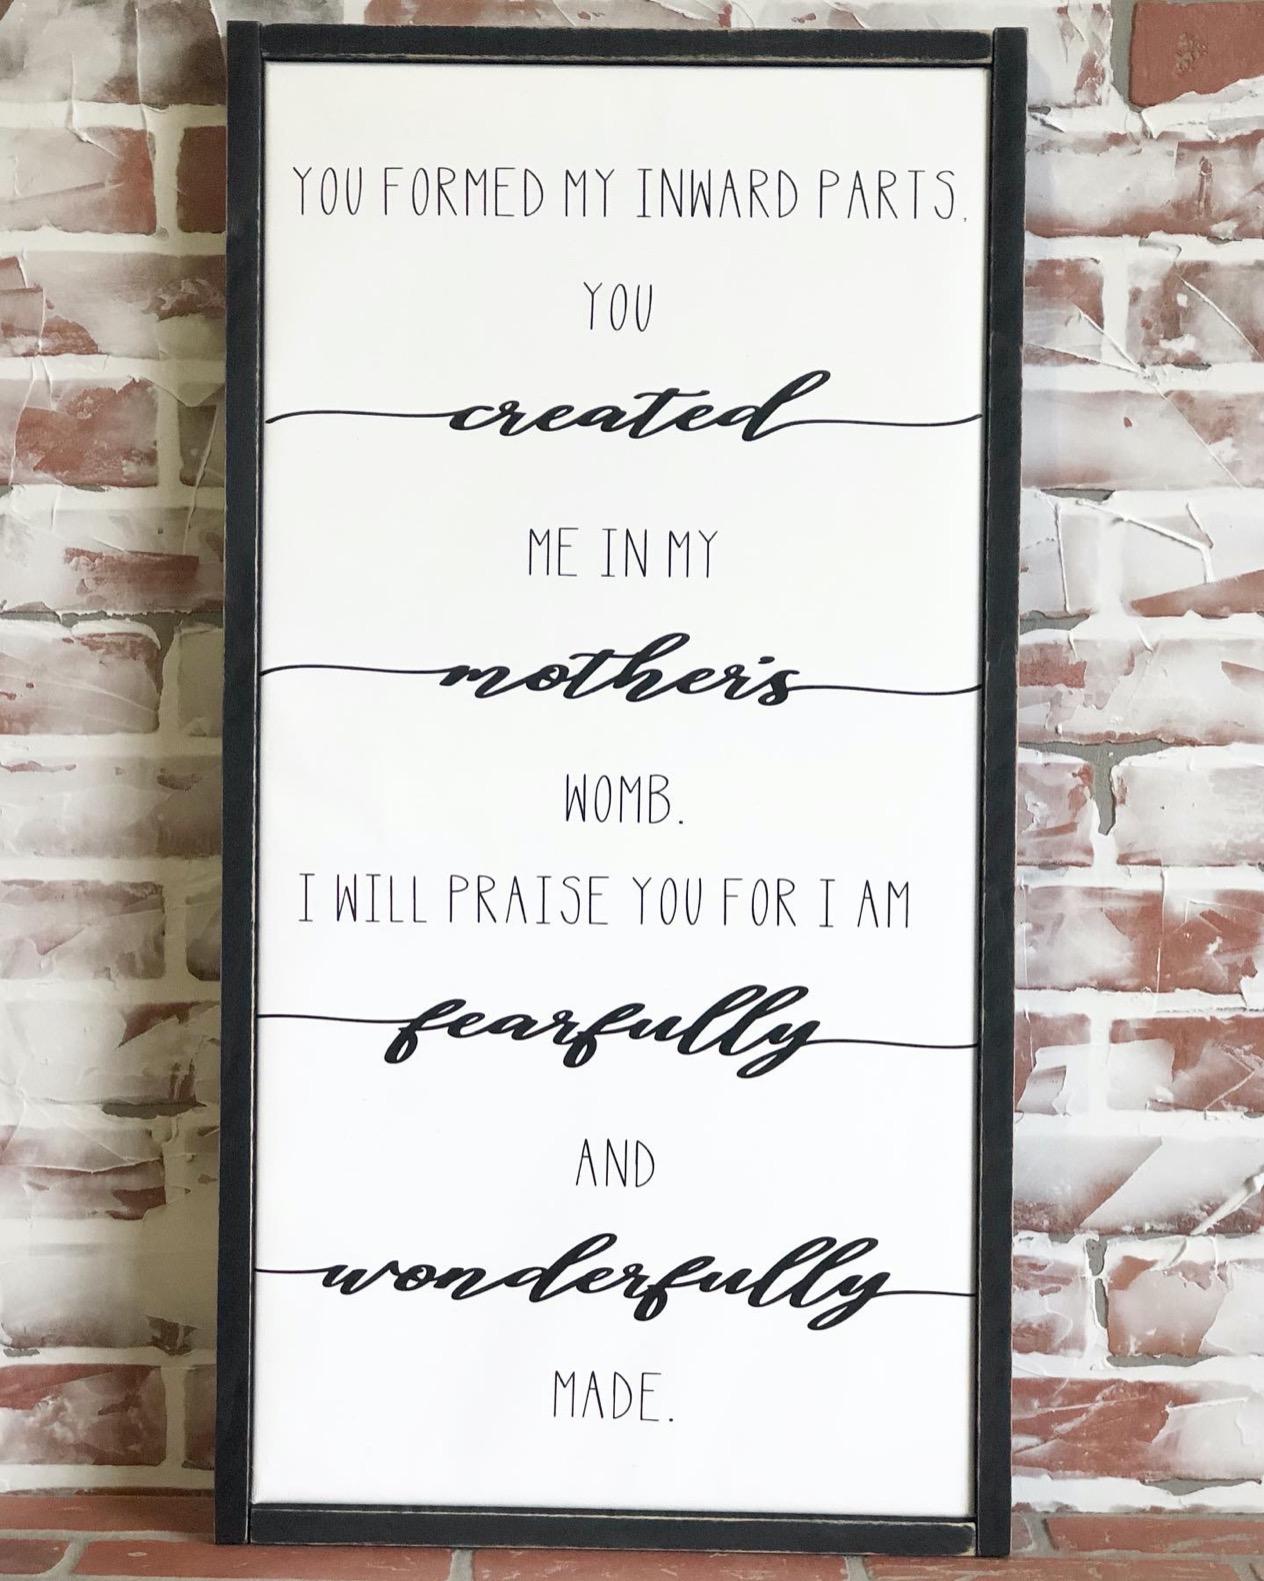 YOU FORMED MY INWARD PARTS.
YOU
created
ME IN MY
mother's
WOMB.
I WILL PRAISE YOU FOR I AM
fearfully
AND
wonderfully
MADE.